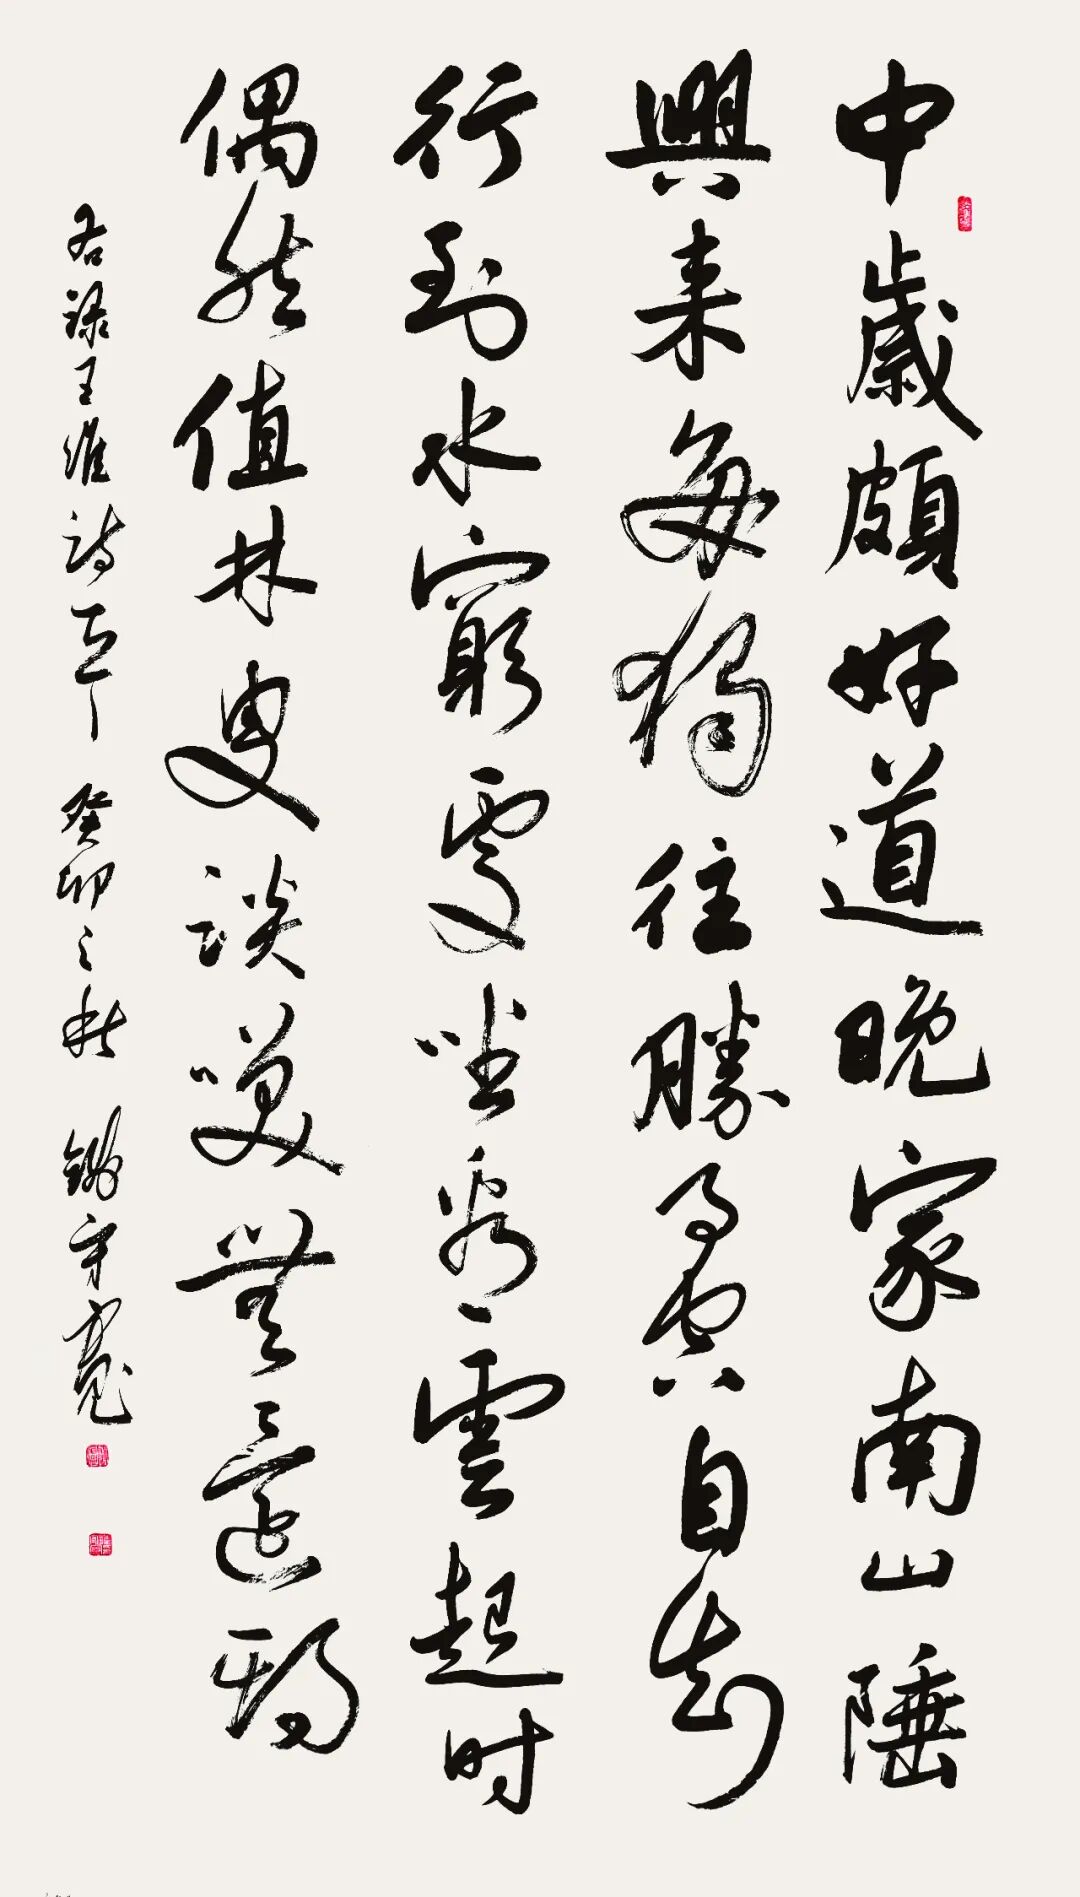 中歲頗好道晚家南山陲
興来每獨往勝事空自知
行到水窮處坐看雲起时
偶然值林叟談笑無還期
右録王維詩 癸卯之秋